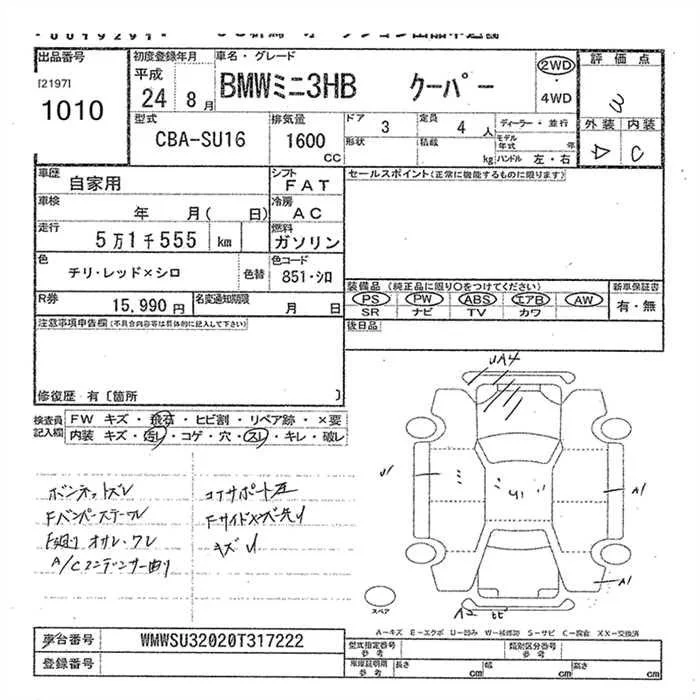 出品番号
[2197]
1010
初度登録年月
平成
24 8月
車名・グレード
BMWミニ3HB クーパー
2WD
・
4WD
評価点
外装 内装
C
型式
CBA-SU16
排気量
1600
CC
ドア 3
定員 4 人
形状
積載 kg
ディーラー・並行
モデル年式 年
ハンドル 左・右
車歴
自家用
シフト
FAT
車検
年 月( 日)
冷房
AC
走行
5万1千555 km
燃料
ガソリン
色
チリ・レッド×シロ
色替
色コード
851・シロ
R券
15,990円
名変通知期限
月 日
セールスポイント(正常に機能するものに限ります)
装備品(純正品に限り○をつけてください)
PS PW ABS エアB AW
SR ナビ TV カワ
新車保証書
有・無
後日品
注意事項申告欄(不具合内容等は具体的に記入して下さい)
修復歴 有〔箇所 〕
検査員
記入欄
FW キズ・飛石・ヒビ割・リペア跡・×要
内装 キズ・汚レ・コゲ・穴・スレ・キレ・破レ
ボンネットズレ
Fバンパーステーワレ
F廻り オサレ・ワレ
A/Cコンデンサー曲り
コアサポート左
キズU
A1
A1
スペア
A−キズ E−エクボ U−凹み W−補修跡 S−サビ C−腐食 XX−交換済
車台番号
WMWSU32020T317222
登録番号
型式指定番号
参考
類別区分番号
参考
車庫証明用
参考
長さ cm 幅 cm 高さ cm